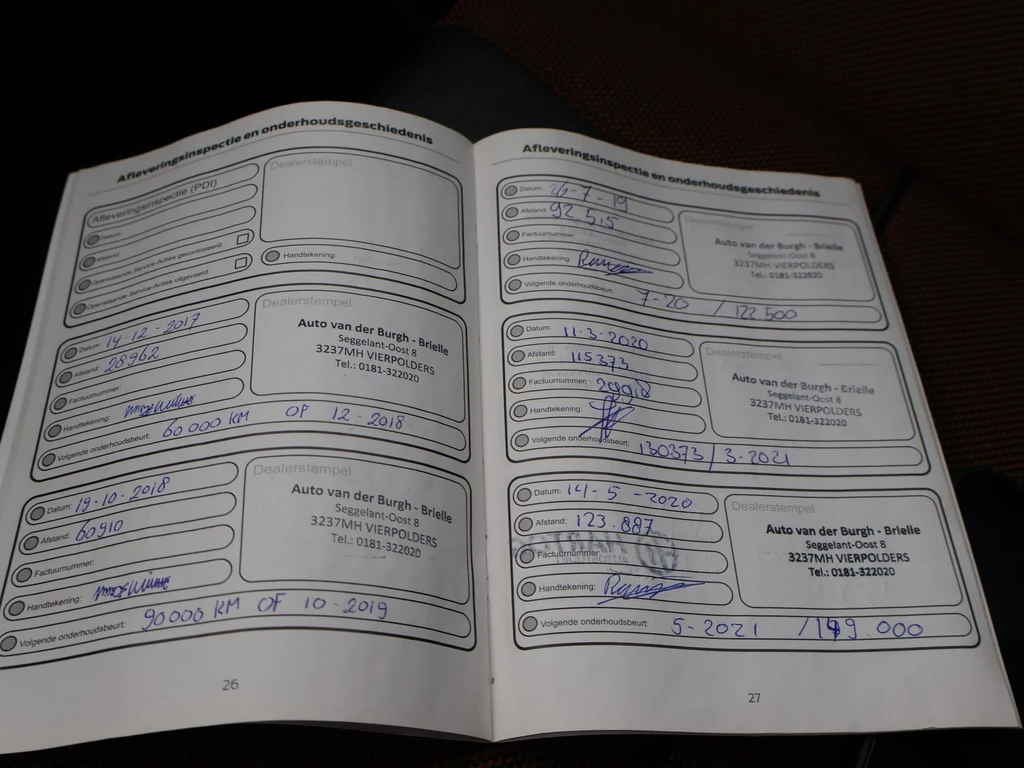 Afleveringsinspectie en onderhoudsgeschiedenis
Afleveringsinspectie (PDI)
Datum:
Afstand:
Openstaande Service-Acties gecontroleerd.
Openstaande Service-Acties uitgevoerd.
Dealerstempel
Handtekening:
Datum: 14-12-2017
Afstand: 28962
Factuurnummer:
Handtekening:
Volgende onderhoudsbeurt: 60 000 KM OF 12-2018
Dealerstempel
Auto van der Burgh - Brielle
Seggelant-Oost 8
3237MH VIERPOLDERS
Tel.: 0181-322020
Datum: 19-10-2018
Afstand: 60910
Factuurnummer:
Handtekening:
Volgende onderhoudsbeurt: 90000 KM OF 10-2019
Dealerstempel
Auto van der Burgh - Brielle
Seggelant-Oost 8
3237MH VIERPOLDERS
Tel.: 0181-322020
26
Afleveringsinspectie en onderhoudsgeschiedenis
Datum: 26-7-19
Afstand: 92.515
Factuurnummer:
Handtekening:
Volgende onderhoudsbeurt: 7-20 / 122.500
Dealerstempel
Auto van der Burgh - Brielle
Seggelant-Oost 8
3237MH VIERPOLDERS
Tel.: 0181-322020
Datum: 11-3-2020
Afstand: 115373
Factuurnummer: 29918
Handtekening:
Volgende onderhoudsbeurt: 130373 / 3-2021
Dealerstempel
Auto van der Burgh - Brielle
Seggelant-Oost 8
3237MH VIERPOLDERS
Tel.: 0181-322020
Datum: 14-5-2020
Afstand: 123.887
Factuurnummer:
Handtekening:
Volgende onderhoudsbeurt: 5-2021 / 149.000
Dealerstempel
Auto van der Burgh - Brielle
Seggelant-Oost 8
3237MH VIERPOLDERS
Tel.: 0181-322020
27